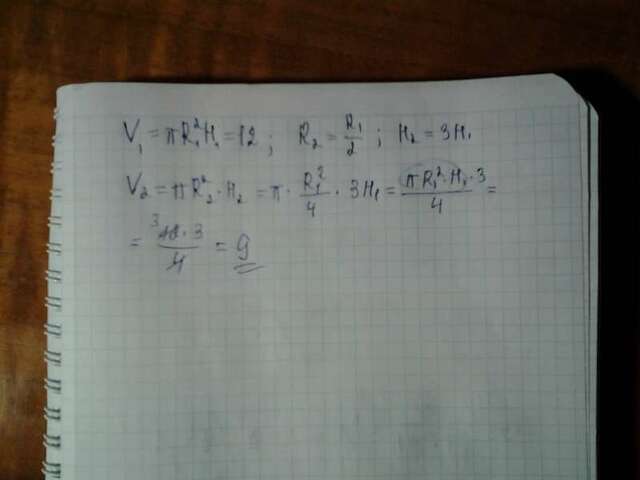 V₁ = πR₁²H₁ = 12 ; R₂ = R₁/2 ; H₂ = 3H₁
V₂ = πR₂²·H₂ = π · R₁²/4 · 3H₁ = πR₁²·H₁·3/4 =
= ³12·3/4 = 9